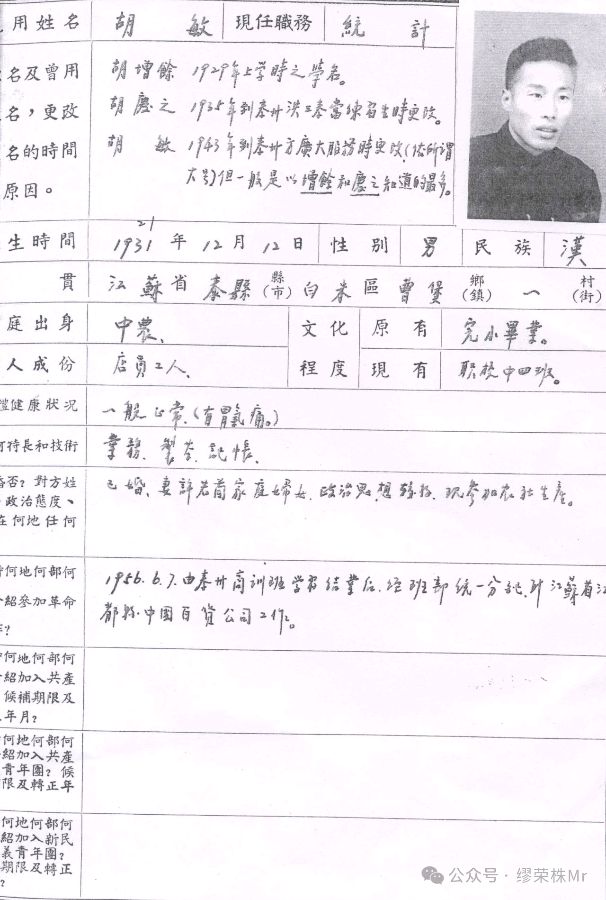 用姓名 胡 敏 現任職務 統 計
名及曾用 胡增餘 1929年上学時之學名。
名,更改 胡慶之 1935年到泰州洪工泰當練習生時更改。
名的時間 胡 敏 1943年到泰州方廣大服務時更改(依所謂
原因。 大号)但一般是以增餘和慶之知道的最多。
21
生時間 1931年12月12日 性別 男 民族 漢
貫 江蘇省泰縣 縣(市) 白米區曹堡 鄉(鎮) 一 村(街)
庭出身 中農、 文化 原有 完小畢業。
人成份 店員工人、 程度 現有 职校中四班。
體健康狀況 一般正常、(有胃氣痛。)
何特長和技術 業務、製表、記帳、
婚否?對方姓 已婚、妻許若蘭家庭婦女、政治思想 现参加农社生產。
、政治態度、
在何地任何
時何地何部何 1956.6.7.由泰州商訓班学習結業后、經班部統一分配、到江蘇省江
介紹參加革命 都縣中国百貨公司工作。
作?
何地何部何
紹加入共產
候補期限及
年月?
何地何部何
紹加入共產
青年團?候
限及轉正年
何地何部何
紹加入新民
義青年團?
期限及轉正
?
公众号·缪荣株Mr